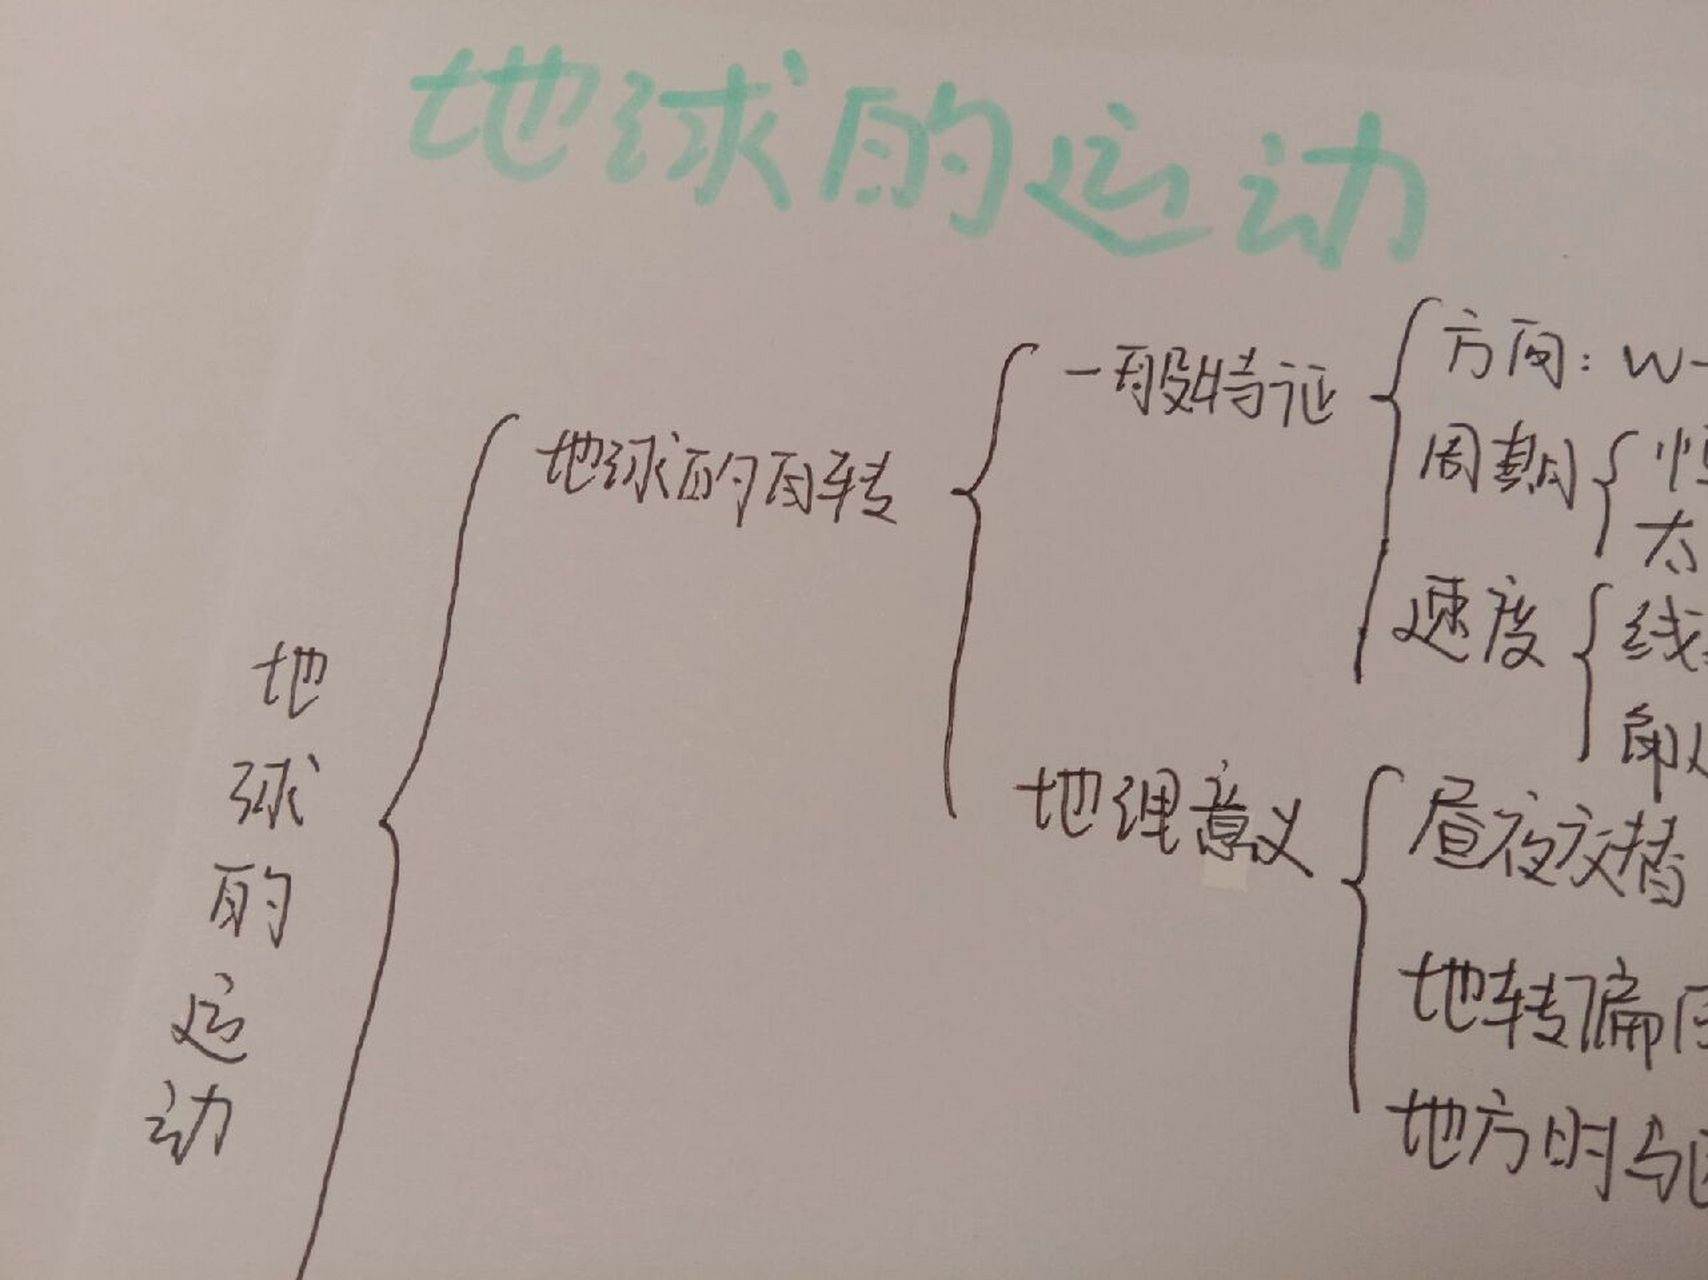 地球的运动
地球的运动
地球的自转
一般特征
方向：W
周期
太
速度
线
地理意义
昼夜交替
地转偏
地方时与